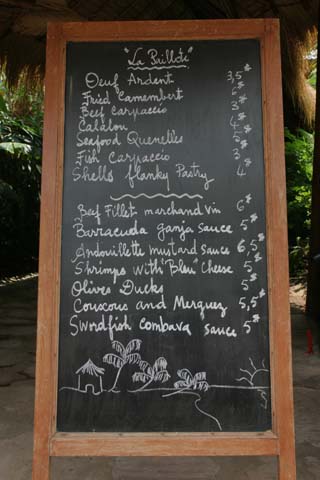 "La Paillote"
Oeuf Ardent 3,5$
Fried Camembert 6$
Beef Carpaccio 3$
Calalou 4$
Seafood Quenelles 5$
Fish Carpaccio 3$
Shells flanky Pastry 4$
Beef Fillet marchand vin 6$
Barracuda ganja sauce 5$
Andouillette mustard sauce 6,5$
Shrimps with "Bleu" Cheese 5$
Olives Ducks 5$
Couscous and Merguez 5,5$
Swordfish combava sauce 5$